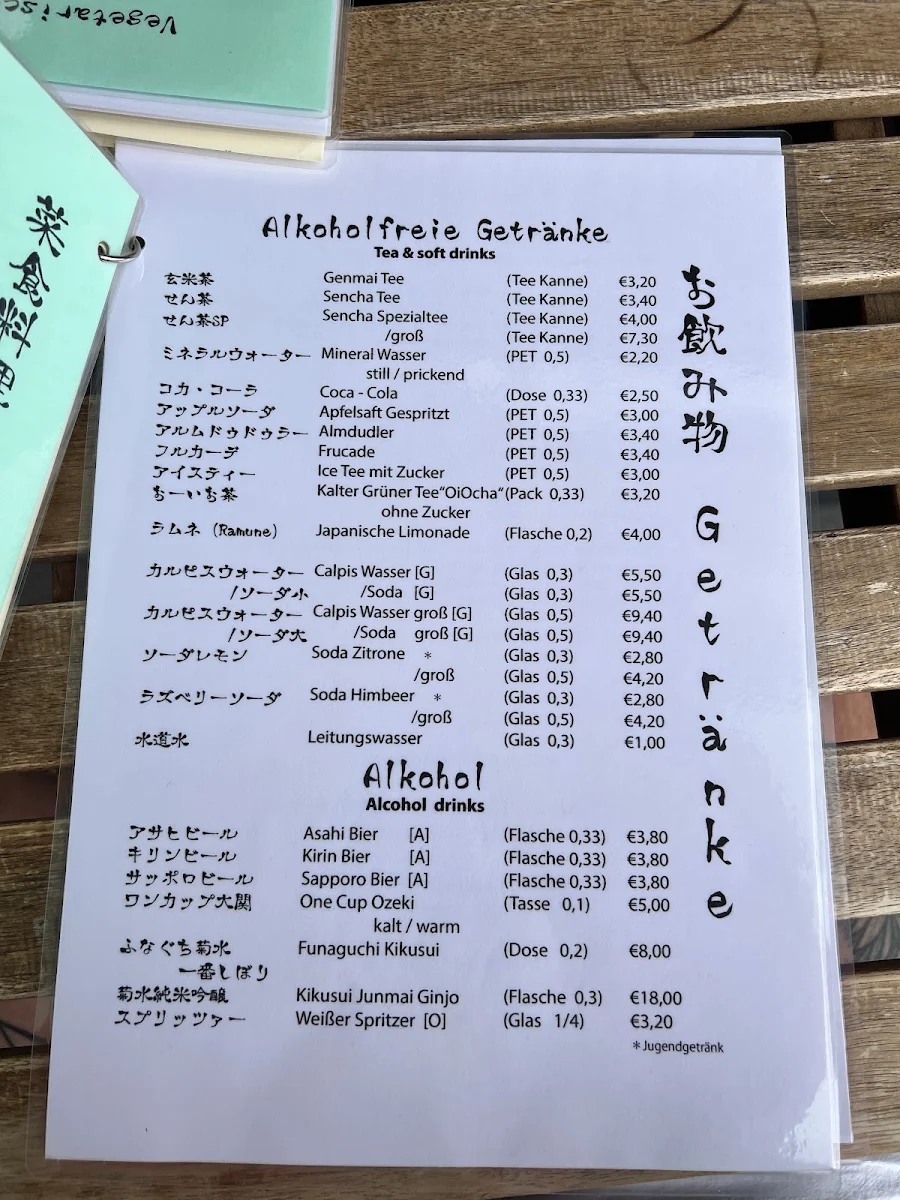 Vegetarisc
菜食料理
Alkoholfreie Getränke
Tea & soft drinks
玄米茶 Genmai Tee (Tee Kanne) €3,20
せん茶 Sencha Tee (Tee Kanne) €3,40
せん茶SP Sencha Spezialtee (Tee Kanne) €4,00
/groß (Tee Kanne) €7,30
ミネラルウォーター Mineral Wasser (PET 0,5) €2,20
still / prickend
コカ・コーラ Coca - Cola (Dose 0,33) €2,50
アップルソーダ Apfelsaft Gespritzt (PET 0,5) €3,00
アルムドゥドゥラー Almdudler (PET 0,5) €3,40
フルカーデ Frucade (PET 0,5) €3,40
アイスティー Ice Tee mit Zucker (PET 0,5) €3,00
おーいお茶 Kalter Grüner Tee“OiOcha“ (Pack 0,33) €3,20
ohne Zucker
ラムネ (Ramune) Japanische Limonade (Flasche 0,2) €4,00
カルピスウォーター Calpis Wasser [G] (Glas 0,3) €5,50
/ソーダ小 /Soda [G] (Glas 0,3) €5,50
カルピスウォーター Calpis Wasser groß [G] (Glas 0,5) €9,40
/ソーダ大 /Soda groß [G] (Glas 0,5) €9,40
ソーダレモン Soda Zitrone * (Glas 0,3) €2,80
/groß (Glas 0,5) €4,20
ラズベリーソーダ Soda Himbeer * (Glas 0,3) €2,80
/groß (Glas 0,5) €4,20
水道水 Leitungswasser (Glas 0,3) €1,00
Alkohol
Alcohol drinks
アサヒビール Asahi Bier [A] (Flasche 0,33) €3,80
キリンビール Kirin Bier [A] (Flasche 0,33) €3,80
サッポロビール Sapporo Bier [A] (Flasche 0,33) €3,80
ワンカップ大関 One Cup Ozeki (Tasse 0,1) €5,00
kalt / warm
ふなぐち菊水 Funaguchi Kikusui (Dose 0,2) €8,00
一番しぼり
菊水純米吟醸 Kikusui Junmai Ginjo (Flasche 0,3) €18,00
スプリッツァー Weißer Spritzer [O] (Glas 1/4) €3,20
* Jugendgetränk
お飲み物 Getränke